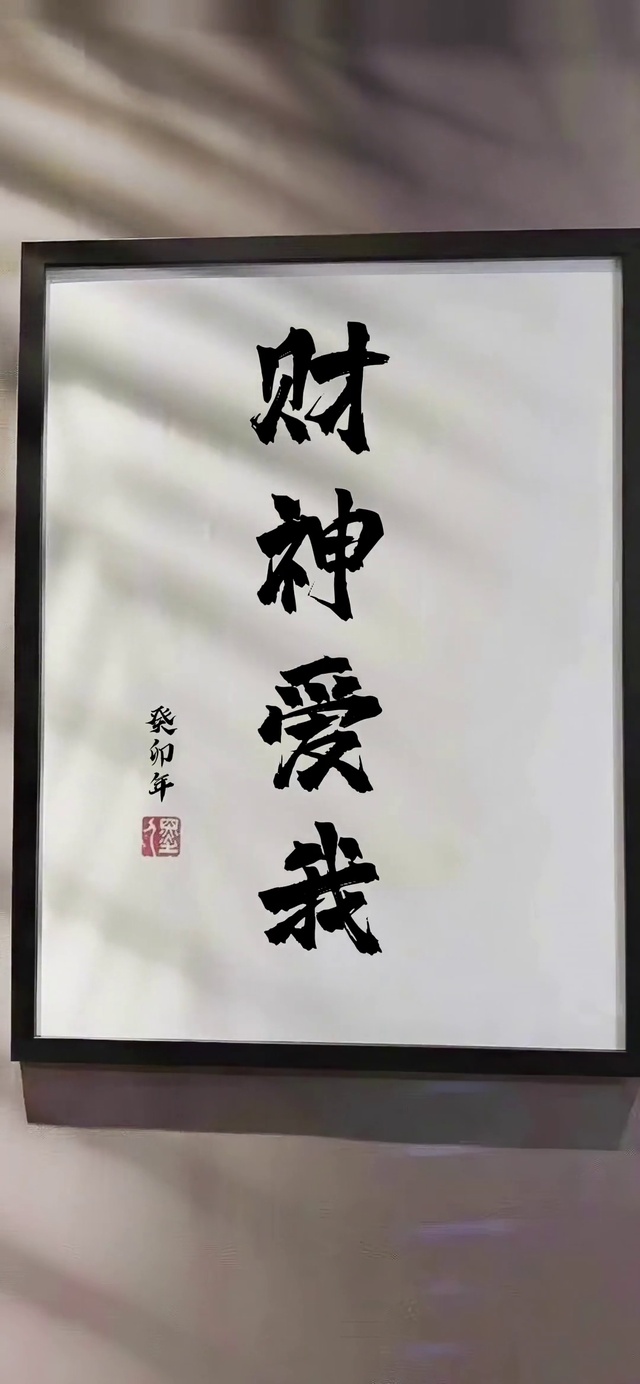 财神爱我
癸卯年